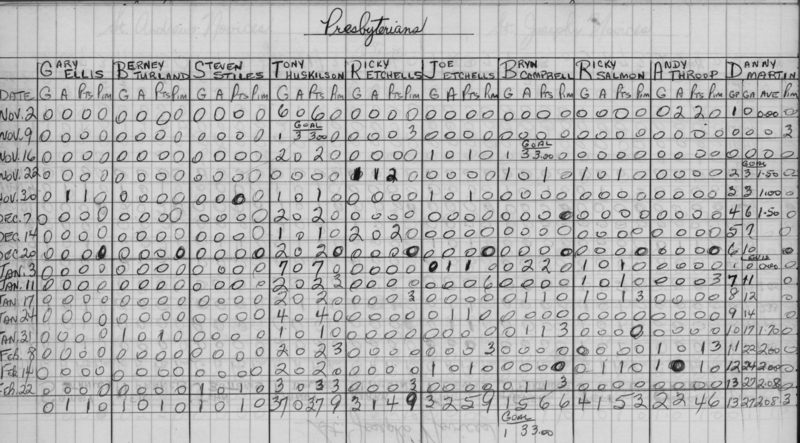 Presbyterians
GARY ELLIS BERNEY TURLAND STEVEN STILES TONY HUSKILSON RICKY ETCHELLS JOE ETCHELLS BRYN CAMPBELL RICKY SALMON ANDY THROOP DANNY MARTIN
DATE G A Pts Pim G A Pts Pim G A Pts Pim G A Pts Pim G A Pts Pim G A Pts Pim G A Pts Pim G A Pts Pim G A Pts Pim GP GA AVE Pim
Nov. 2 0 0 0 0 0 0 0 0 0 0 0 0 6 0 6 0 0 0 0 0 0 0 0 0 0 0 0 0 0 0 0 0 0 2 2 0 1 0 0.00
GOAL
Nov. 9 0 0 0 0 0 0 0 0 0 0 0 0 1 3 3.00 0 0 0 3 0 0 0 0 0 0 0 0 0 0 0 0 0 0 0 0 0 0 0 3
GOAL
Nov. 16 0 0 0 0 0 0 0 0 0 0 0 0 2 0 2 0 0 0 0 0 1 0 1 0 1 3 3.00 0 0 0 0 0 0 0 0 0 0 0 0
GOAL
Nov. 22 0 0 0 0 0 0 0 0 0 0 0 0 0 0 0 0 1 1 2 0 0 0 0 0 1 0 1 0 1 0 1 0 0 0 0 0 2 3 1.50
Nov. 30 0 1 1 0 0 0 0 0 0 0 0 0 1 0 1 0 0 0 0 0 1 0 1 0 0 0 0 0 0 0 0 0 0 0 0 0 3 3 1.00
Dec. 7 0 0 0 0 0 0 0 0 0 0 0 0 2 0 2 0 0 0 0 0 0 0 0 0 0 0 0 0 0 0 0 0 0 0 0 0 4 6 1.50
Dec. 14 0 0 0 0 0 0 0 0 0 0 0 0 1 0 1 0 2 0 2 0 0 0 0 0 0 0 0 0 0 0 0 0 0 0 0 0 5 7
Dec. 20 0 0 0 0 0 0 0 0 0 0 0 0 2 0 2 0 0 0 0 0 0 0 0 0 0 0 0 0 0 0 0 0 0 0 0 0 6 10
Jan. 3 0 0 0 0 0 0 0 0 0 0 0 0 7 0 7 0 0 0 0 0 0 1 1 0 0 2 2 0 1 0 1 0 1 0 0.00
Jan. 11 0 0 0 0 0 0 0 0 0 0 0 0 2 0 2 3 0 0 0 0 0 0 0 6 0 0 0 0 1 0 1 0 0 0 0 3 7 11
Jan. 17 0 0 0 0 0 0 0 0 0 0 0 0 2 0 2 0 0 0 0 3 0 0 0 0 0 1 1 0 1 0 1 3 0 0 0 0 8 12
Jan. 24 0 0 0 0 0 0 0 0 0 0 0 0 4 0 4 0 0 0 0 0 0 1 1 0 0 0 0 0 0 0 0 0 0 0 0 0 9 14
Jan. 31 0 0 0 0 1 0 1 0 0 0 0 0 1 0 1 0 0 0 0 0 0 0 0 0 0 1 1 3 0 0 0 0 0 0 0 0 10 17 1.70
Feb. 8 0 0 0 0 0 0 0 0 0 0 0 0 2 0 2 3 0 0 0 0 0 0 0 3 0 0 0 0 0 0 0 0 1 0 1 3 11 22 2.00
Feb. 14 0 0 0 0 0 0 0 0 0 0 0 0 2 0 2 0 0 0 0 0 1 0 1 0 0 0 0 0 0 1 1 0 1 0 1 0 12 24 2.00
Feb. 22 0 0 0 0 0 0 0 0 1 0 1 0 3 0 3 3 0 0 0 0 0 0 0 0 0 1 1 3 0 0 0 0 0 0 0 0 13 27 2.08
0 1 1 0 1 0 1 0 1 0 1 0 37 0 37 9 3 1 4 9 3 2 5 9 1 5 6 6 4 1 5 3 2 2 4 6 13 27 2.08 3
GOAL
1 3 3.00